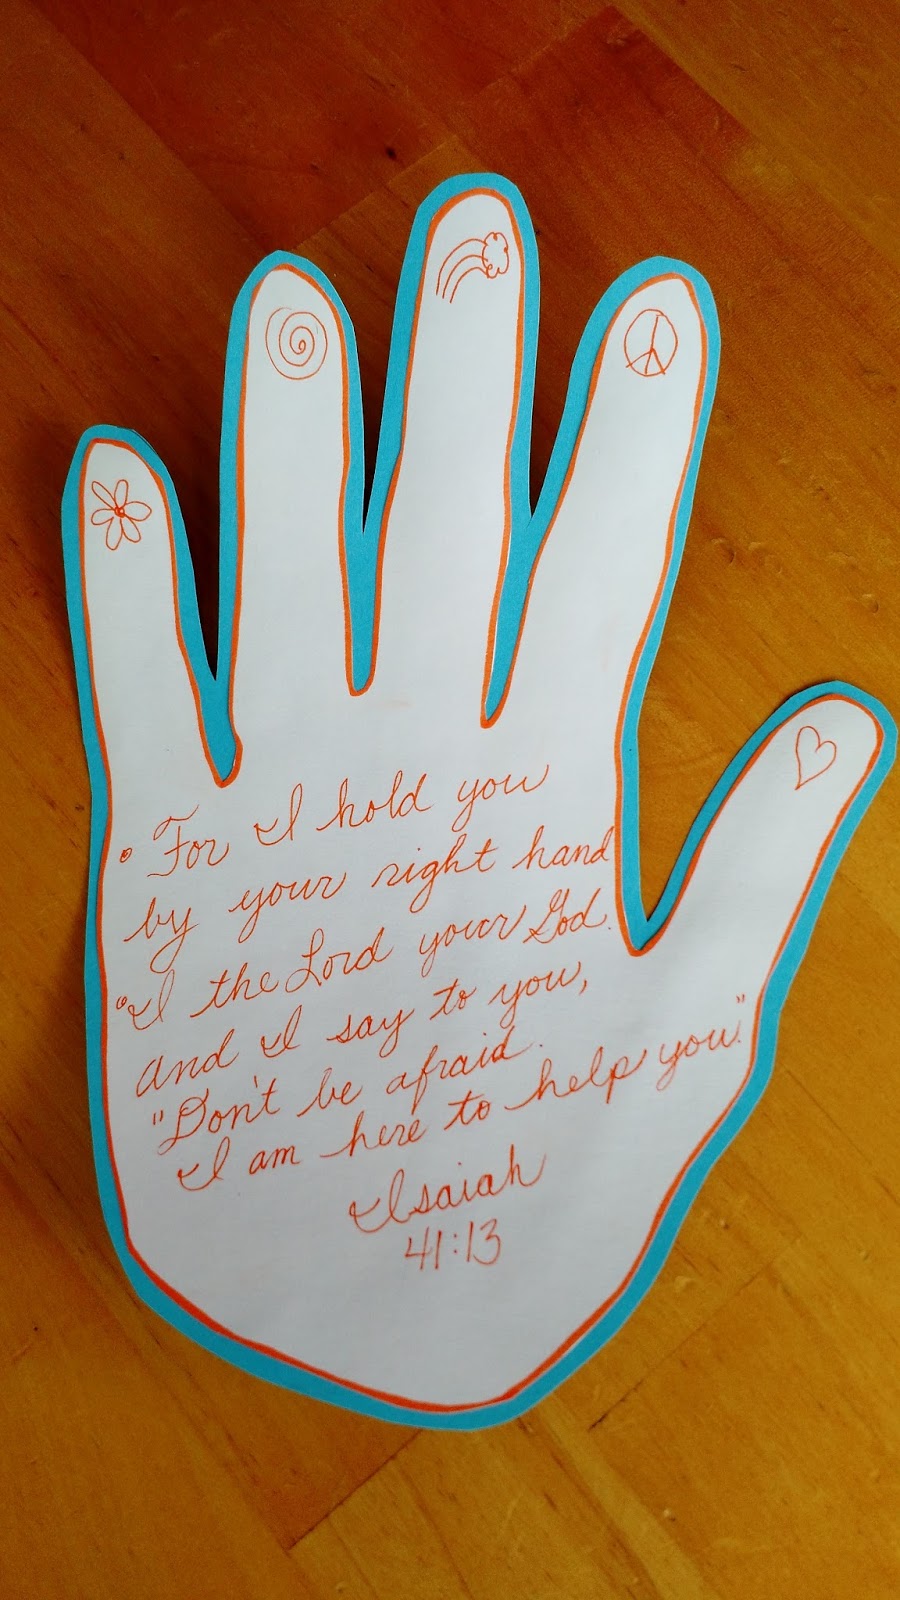 "For I hold you
by your right hand
"I the Lord your God.
And I say to you,
"Don't be afraid.
I am here to help you."
Isaiah
41:13